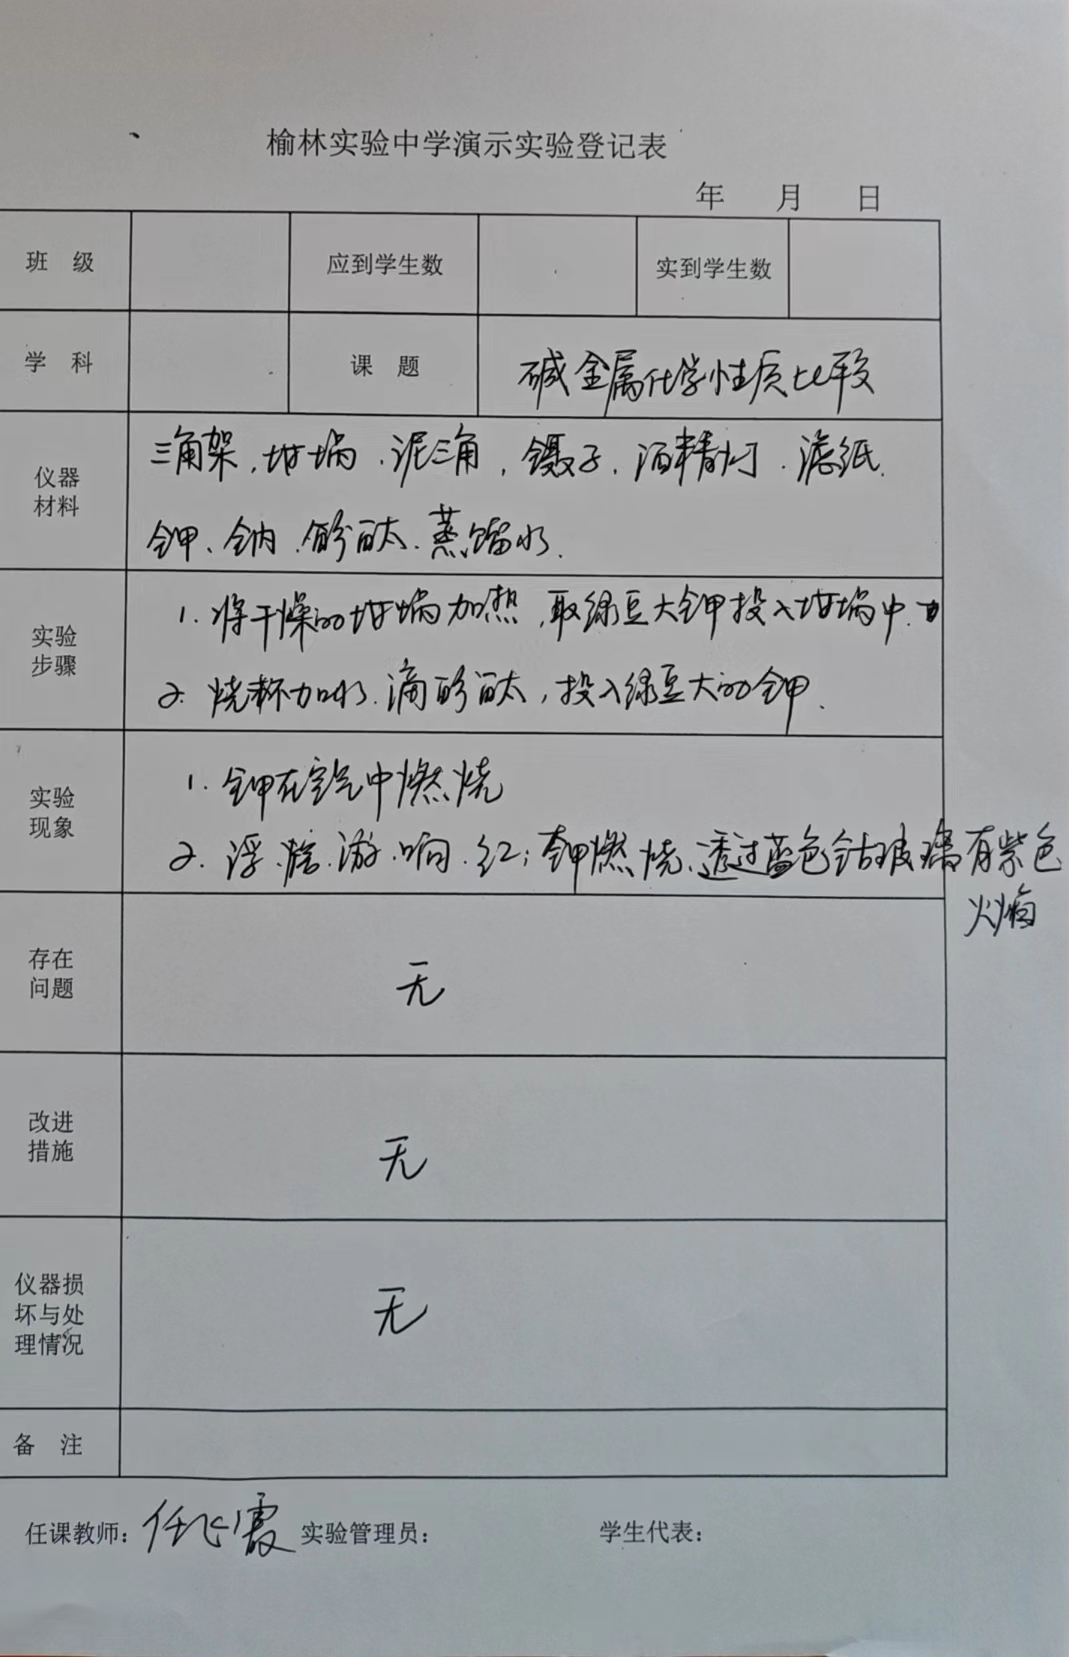 榆林实验中学演示实验登记表
年 月 日
班 级 应到学生数 实到学生数
学 科 课 题 碱金属化学性质比较
仪器材料 三角架、坩埚、泥三角、镊子、酒精灯、滤纸、
钾、钠、酚酞、蒸馏水.
实验步骤 1. 将干燥的坩埚加热,取绿豆大钾投入坩埚中.
2. 烧杯加水.滴酚酞,投入绿豆大的钾.
实验现象 1. 钾在空气中燃烧
2. 浮.熔.游.响.红;钾燃烧.透过蓝色钴玻璃有紫色
火焰
存在问题 无
改进措施 无
仪器损坏与处理情况 无
备 注
任课教师:任飞霞 实验管理员: 学生代表: